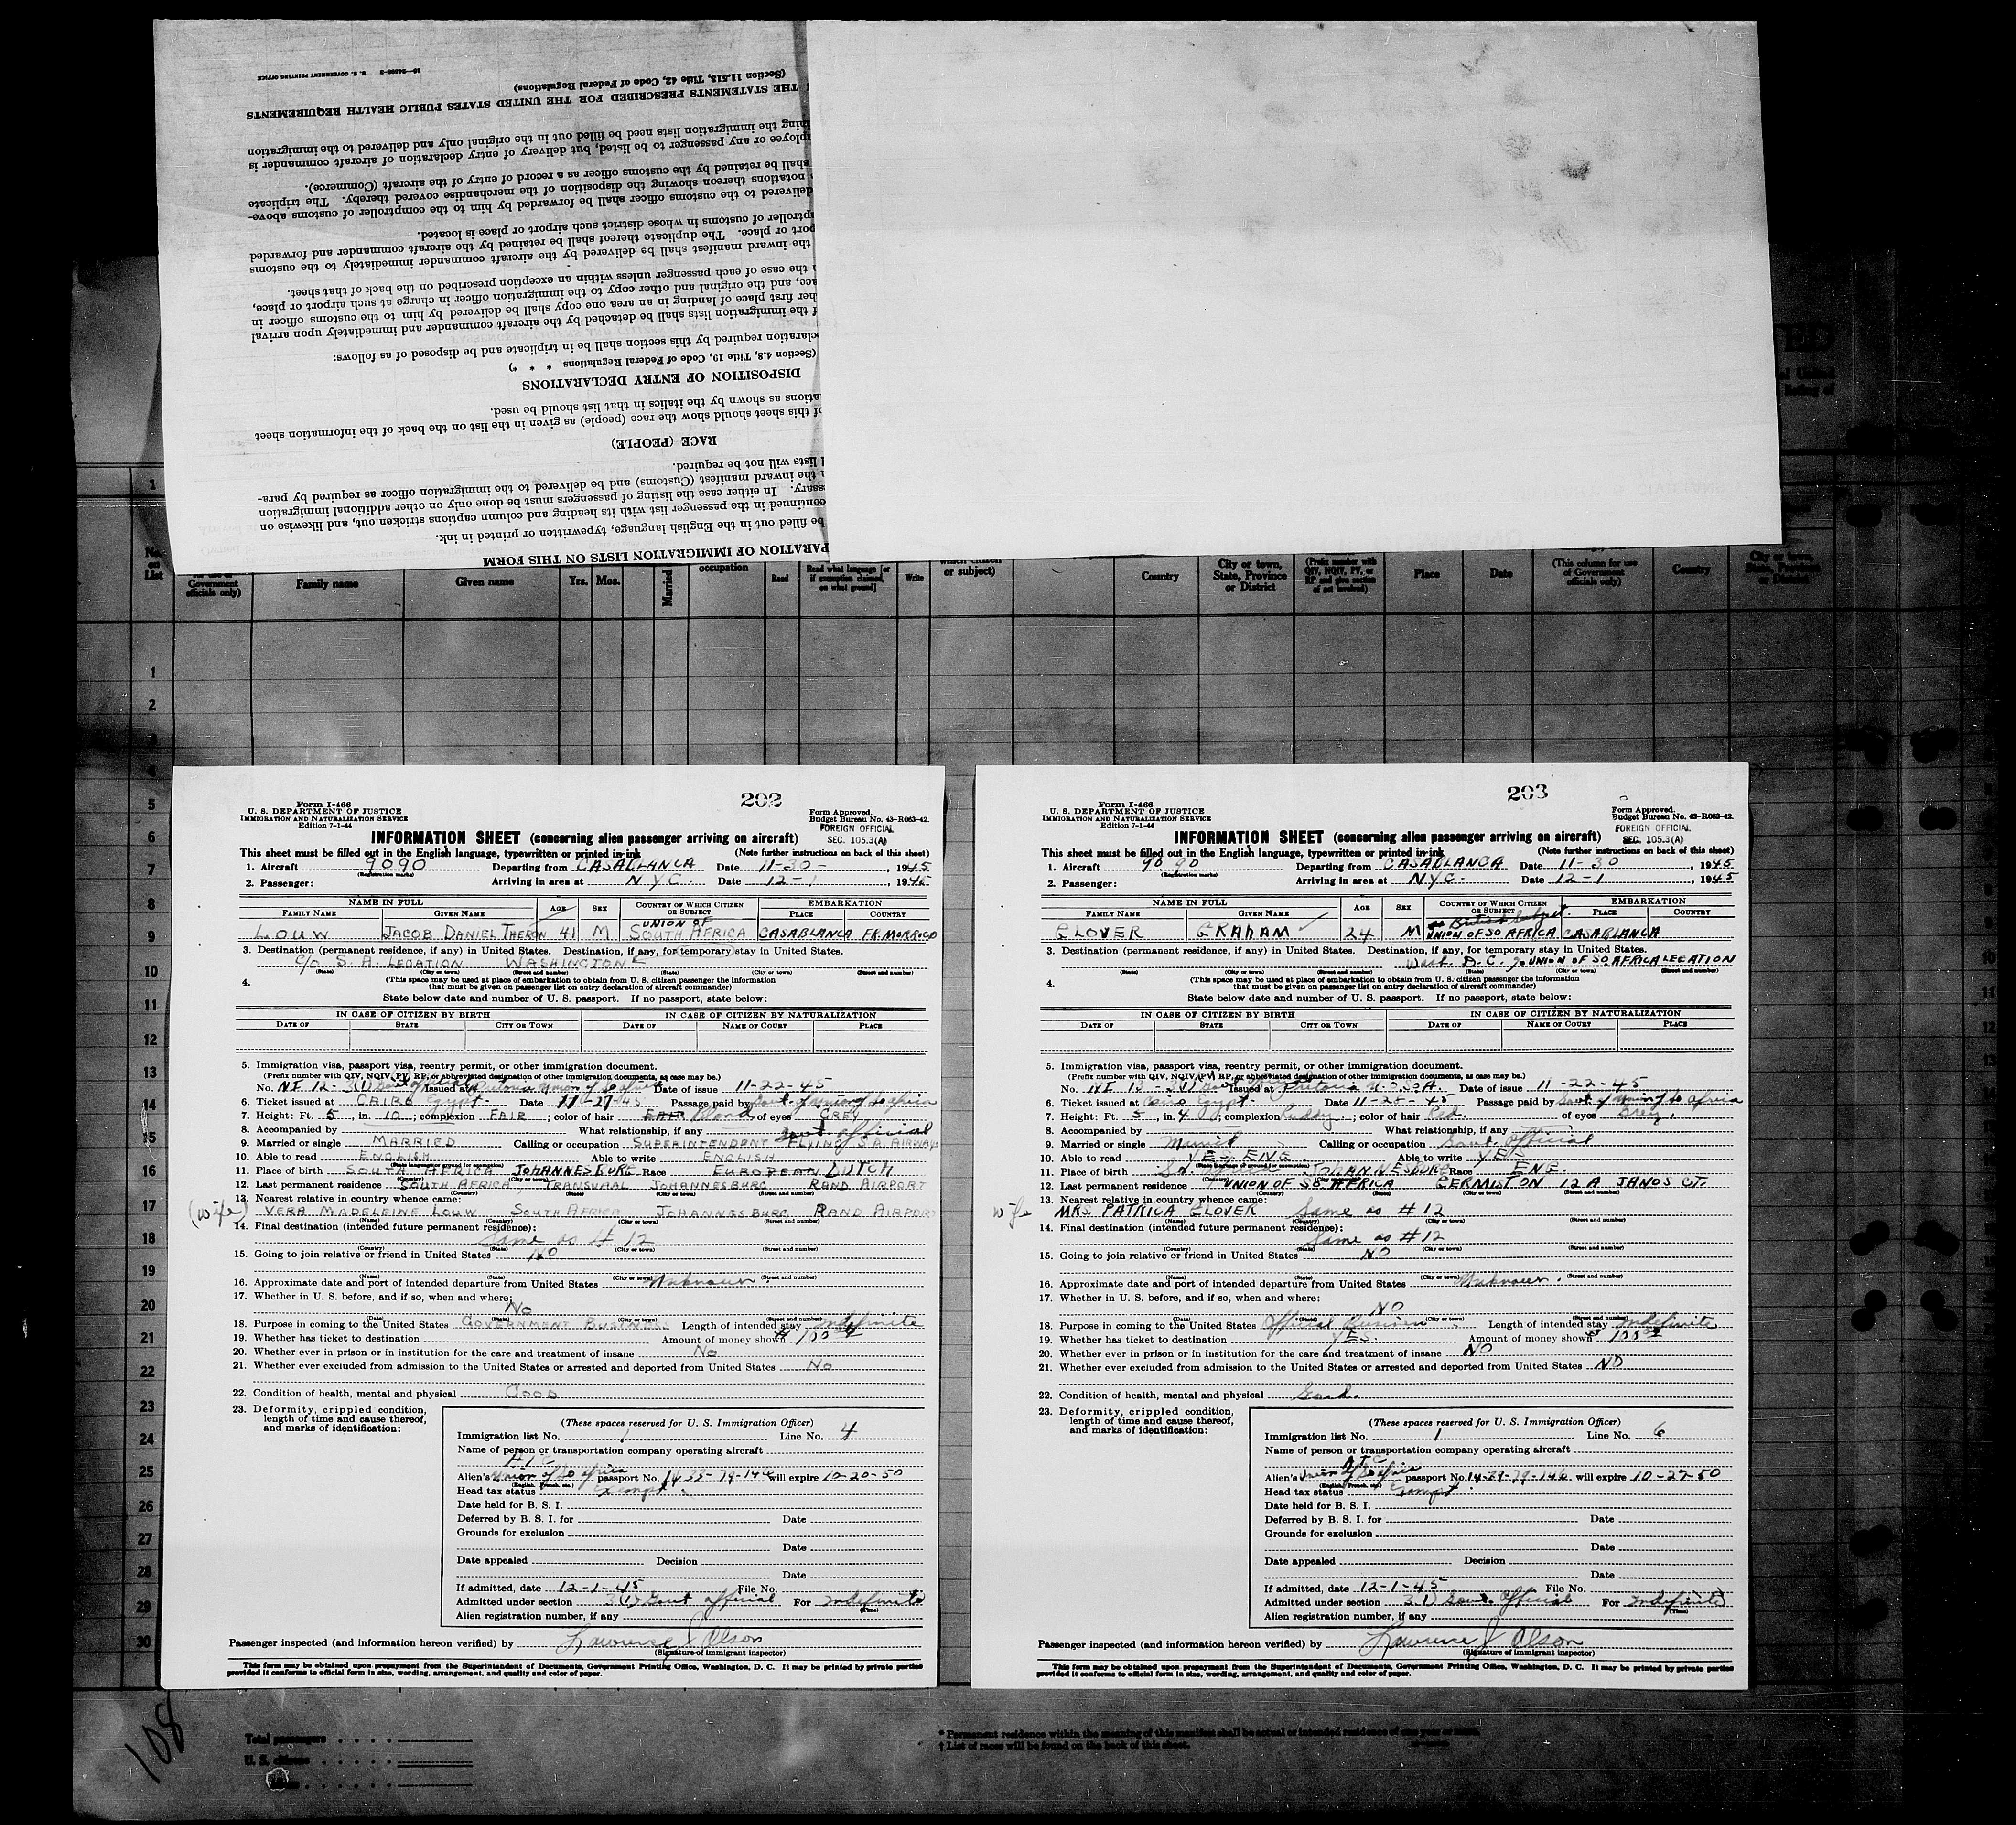 16—24906-3 U. S. GOVERNMENT PRINTING OFFICE
(Section 11.513, Title 42, Code of Federal Regulations)
THE STATEMENTS PRESCRIBED FOR THE UNITED STATES PUBLIC HEALTH REQUIREMENTS
the immigration lists need be filled out in the original only and delivered to the immigration
or any passenger to be listed, but delivery of entry declaration of aircraft commander is
shall be retained by the customs officer as a record of entry of the aircraft (Commerce).
notations thereon showing the disposition of the merchandise covered thereby. The triplicate
delivered to the customs officer shall be forwarded by him to the comptroller of customs above-
of customs in whose district such airport or place is located.
or place. The duplicate thereof shall be retained by the aircraft commander and forwarded
the inward manifest shall be delivered by the aircraft commander immediately to the customs
the case of each passenger unless within an exception prescribed on the back of that sheet.
and the original and other copy to the immigration officer in charge at such airport or place,
her first place of landing in an area one copy shall be delivered by him to the customs officer in
the immigration lists shall be detached by the aircraft commander and immediately upon arrival
required by this section shall be in triplicate and be disposed of as follows:
(Section 4.8, Title 19, Code of Federal Regulations * * *)
DISPOSITION OF ENTRY DECLARATIONS
as shown by the italics in that list should be used.
of this sheet should show the race (people) as given in the list on the back of the information sheet
RACE (PEOPLE)
lists will not be required.
the inward manifest (Customs) and be delivered to the immigration officer as required by para-
In either case the listing of passengers must be done only on other additional immigration
continued in the passenger list with its heading and column captions stricken out, and likewise on
be filled out in the English language, typewritten or printed in ink.
OF IMMIGRATION LISTS ON THIS FORM
No. on List
Government officials only)
Family name
Given name
Yrs.
Mos.
Married
occupation
Read
Read what language [or if exemption claimed, on what ground]
Write
or subject)
Country
City or town, State, Province or District
(Prefix number with QIV, NQIV, PV, or RP and give section of act involved)
Place
Date
(This column for use of Government officials only)
Country
City or town, State, Province or District
1
2
3
4
5
6
7
8
9
10
11
12
13
14
15
16
17
18
19
20
21
22
23
24
25
26
27
28
29
30
202
Form I-466
U. S. DEPARTMENT OF JUSTICE
IMMIGRATION AND NATURALIZATION SERVICE
Edition 7-1-44
Form Approved.
Budget Bureau No. 43-R063-42.
FOREIGN OFFICIAL
SEC. 105.3(A)
INFORMATION SHEET (concerning alien passenger arriving on aircraft)
This sheet must be filled out in the English language, typewritten or printed in ink (Note further instructions on back of this sheet)
1. Aircraft 9090 Departing from CASABLANCA Date 11-30- , 1945
(Registration marks)
2. Passenger: Arriving in area at NYC. Date 12-1 , 1945
NAME IN FULL AGE SEX COUNTRY OF WHICH CITIZEN OR SUBJECT EMBARKATION
FAMILY NAME GIVEN NAME PLACE COUNTRY
LOUW JACOB DANIEL THERON 41 M UNION OF SOUTH AFRICA CASABLANCA FR. MORROCO
3. Destination (permanent residence, if any) in United States. Destination, if any, for temporary stay in United States.
C/O S. A. LEGATION WASHINGTON
(State) (City or town) (Street and number) (State) (City or town) (Street and number)
4. (This space may be used at place of embarkation to obtain from U. S. citizen passenger the information
that must be given on passenger list on entry declaration of aircraft commander)
State below date and number of U. S. passport. If no passport, state below:
IN CASE OF CITIZEN BY BIRTH IN CASE OF CITIZEN BY NATURALIZATION
DATE OF STATE CITY OR TOWN DATE OF NAME OF COURT PLACE
5. Immigration visa, passport visa, reentry permit, or other immigration document.
(Prefix number with QIV, NQIV, PV, RP, or abbreviated designation of other immigration documents, as case may be.)
No. NI 12-3(1) Govt official Issued at Pretoria Union of So Africa Date of issue 11-22-45
6. Ticket issued at CAIRO Egypt. Date 11-27-45 Passage paid by Govt. of Union of So Africa
7. Height: Ft. 5, in. 10; complexion FAIR; color of hair FAIR Blond of eyes GREY
8. Accompanied by What relationship, if any
Govt. official
9. Married or single MARRIED Calling or occupation SUPERINTENDENT FLYING S.A. AIRWAYS
10. Able to read ENGLISH Able to write ENGLISH
(State language or ground for exemption)
11. Place of birth SOUTH AFRICA JOHANNESBURG Race EUROPEAN DUTCH
12. Last permanent residence SOUTH AFRICA, TRANSVAAL JOHANNESBURG RAND AIRPORT
(Country) (State) (City or town) (Street and number)
13. Nearest relative in country whence came:
(wife) VERA MADELEINE LOUW SOUTH AFRICA JOHANNESBURG RAND AIRPORT
(Name) (Country) (City or town) (Street and number)
14. Final destination (intended future permanent residence):
Same as # 12
(Country) (State) (City or town) (Street and number)
15. Going to join relative or friend in United States NO
(Name) (State) (City or town) (Street and number)
16. Approximate date and port of intended departure from United States Unknown
17. Whether in U. S. before, and if so, when and where:
No
(Date) (State) (City or town) (Street and number)
18. Purpose in coming to the United States GOVERNMENT BUSINESS Length of intended stay Indefinite
19. Whether has ticket to destination Amount of money shown $ 100
20. Whether ever in prison or in institution for the care and treatment of insane No
21. Whether ever excluded from admission to the United States or arrested and deported from United States No
22. Condition of health, mental and physical GOOD
23. Deformity, crippled condition,
length of time and cause thereof,
and marks of identification:
(These spaces reserved for U. S. Immigration Officer)
Immigration list No. 1 Line No. 4
Name of person or transportation company operating aircraft
ATC
Alien's Union of So Africa passport No. will expire 10-20-50
(English, French, etc.)
Head tax status Exempt
Date held for B. S. I.
Deferred by B. S. I. for Date
Grounds for exclusion
Date
Date appealed Decision
Date
If admitted, date 12-1-45 File No.
Admitted under section 3(1) Govt official For Indefinite
(Time)
Alien registration number, if any
Passenger inspected (and information hereon verified) by Lawrence J Olson
(Signature of immigrant inspector)
This form may be obtained upon prepayment from the Superintendent of Documents, Government Printing Office, Washington, D. C. It may be printed by private parties
provided it conforms to official form in size, wording, arrangement, and quality and color of paper.
203
Form I-466
U. S. DEPARTMENT OF JUSTICE
IMMIGRATION AND NATURALIZATION SERVICE
Edition 7-1-44
Form Approved.
Budget Bureau No. 43-R063-42.
FOREIGN OFFICIAL
SEC. 105.3(A)
INFORMATION SHEET (concerning alien passenger arriving on aircraft)
This sheet must be filled out in the English language, typewritten or printed in ink (Note further instructions on back of this sheet)
1. Aircraft 9090 Departing from CASABLANCA Date 11-30 , 1945
(Registration marks)
2. Passenger: Arriving in area at NYC. Date 12-1 , 1945
NAME IN FULL AGE SEX COUNTRY OF WHICH CITIZEN OR SUBJECT EMBARKATION
FAMILY NAME GIVEN NAME PLACE COUNTRY
British Subject.
GLOVER GRAHAM 24 M UNION OF SO AFRICA CASABLANCA
3. Destination (permanent residence, if any) in United States. Destination, if any, for temporary stay in United States.
Wash. D. C. % UNION OF SO. AFRICA LEGATION
(State) (City or town) (Street and number) (State) (City or town) (Street and number)
4. (This space may be used at place of embarkation to obtain from U. S. citizen passenger the information
that must be given on passenger list on entry declaration of aircraft commander)
State below date and number of U. S. passport. If no passport, state below:
IN CASE OF CITIZEN BY BIRTH IN CASE OF CITIZEN BY NATURALIZATION
DATE OF STATE CITY OR TOWN DATE OF NAME OF COURT PLACE
5. Immigration visa, passport visa, reentry permit, or other immigration document.
(Prefix number with QIV, NQIV, PV, RP, or abbreviated designation of other immigration documents, as case may be.)
No. Issued at Pretoria U. of S. A. Date of issue 11-22-45
6. Ticket issued at Cairo Egypt. Date 11-25-45 Passage paid by Govt. of Union of So Africa
7. Height: Ft. 5, in. 4; complexion Ruddy; color of hair Red. of eyes Grey.
8. Accompanied by What relationship, if any
9. Married or single Married Calling or occupation Govt. Official
10. Able to read YES ENG. Able to write YES
(State language or ground for exemption)
11. Place of birth So. Africa JOHANNESBURG Race ENG.
12. Last permanent residence UNION OF SO AFRICA GERMISTON 12 A JANOS CT.
(Country) (State) (City or town) (Street and number)
13. Nearest relative in country whence came:
wife MRS PATRICA GLOVER Same as # 12
(Name) (Country) (City or town) (Street and number)
14. Final destination (intended future permanent residence):
Same as # 12
(Country) (State) (City or town) (Street and number)
15. Going to join relative or friend in United States NO
(Name) (State) (City or town) (Street and number)
16. Approximate date and port of intended departure from United States Unknown.
17. Whether in U. S. before, and if so, when and where:
NO
(Date) (State) (City or town) (Street and number)
18. Purpose in coming to the United States Official Business Length of intended stay Indefinite
19. Whether has ticket to destination YES. Amount of money shown $ 100
20. Whether ever in prison or in institution for the care and treatment of insane NO
21. Whether ever excluded from admission to the United States or arrested and deported from United States NO
22. Condition of health, mental and physical Good.
23. Deformity, crippled condition,
length of time and cause thereof,
and marks of identification:
(These spaces reserved for U. S. Immigration Officer)
Immigration list No. 1 Line No. 6
Name of person or transportation company operating aircraft
ATC
Alien's Union of So Africa passport No. will expire 10-27-50
(English, French, etc.)
Head tax status Exempt
Date held for B. S. I.
Deferred by B. S. I. for Date
Grounds for exclusion
Date
Date appealed Decision
Date
If admitted, date 12-1-45 File No.
Admitted under section 3(1) Govt. Official For Indefinite
(Time)
Alien registration number, if any
Passenger inspected (and information hereon verified) by Lawrence J Olson
(Signature of immigrant inspector)
This form may be obtained upon prepayment from the Superintendent of Documents, Government Printing Office, Washington, D. C. It may be printed by private parties
provided it conforms to official form in size, wording, arrangement, and quality and color of paper.
108
Total passengers
U. S. citizens
* Permanent residence within the meaning of this manifest shall be actual or intended residence of one year or more.
† List of races will be found on the back of this sheet.